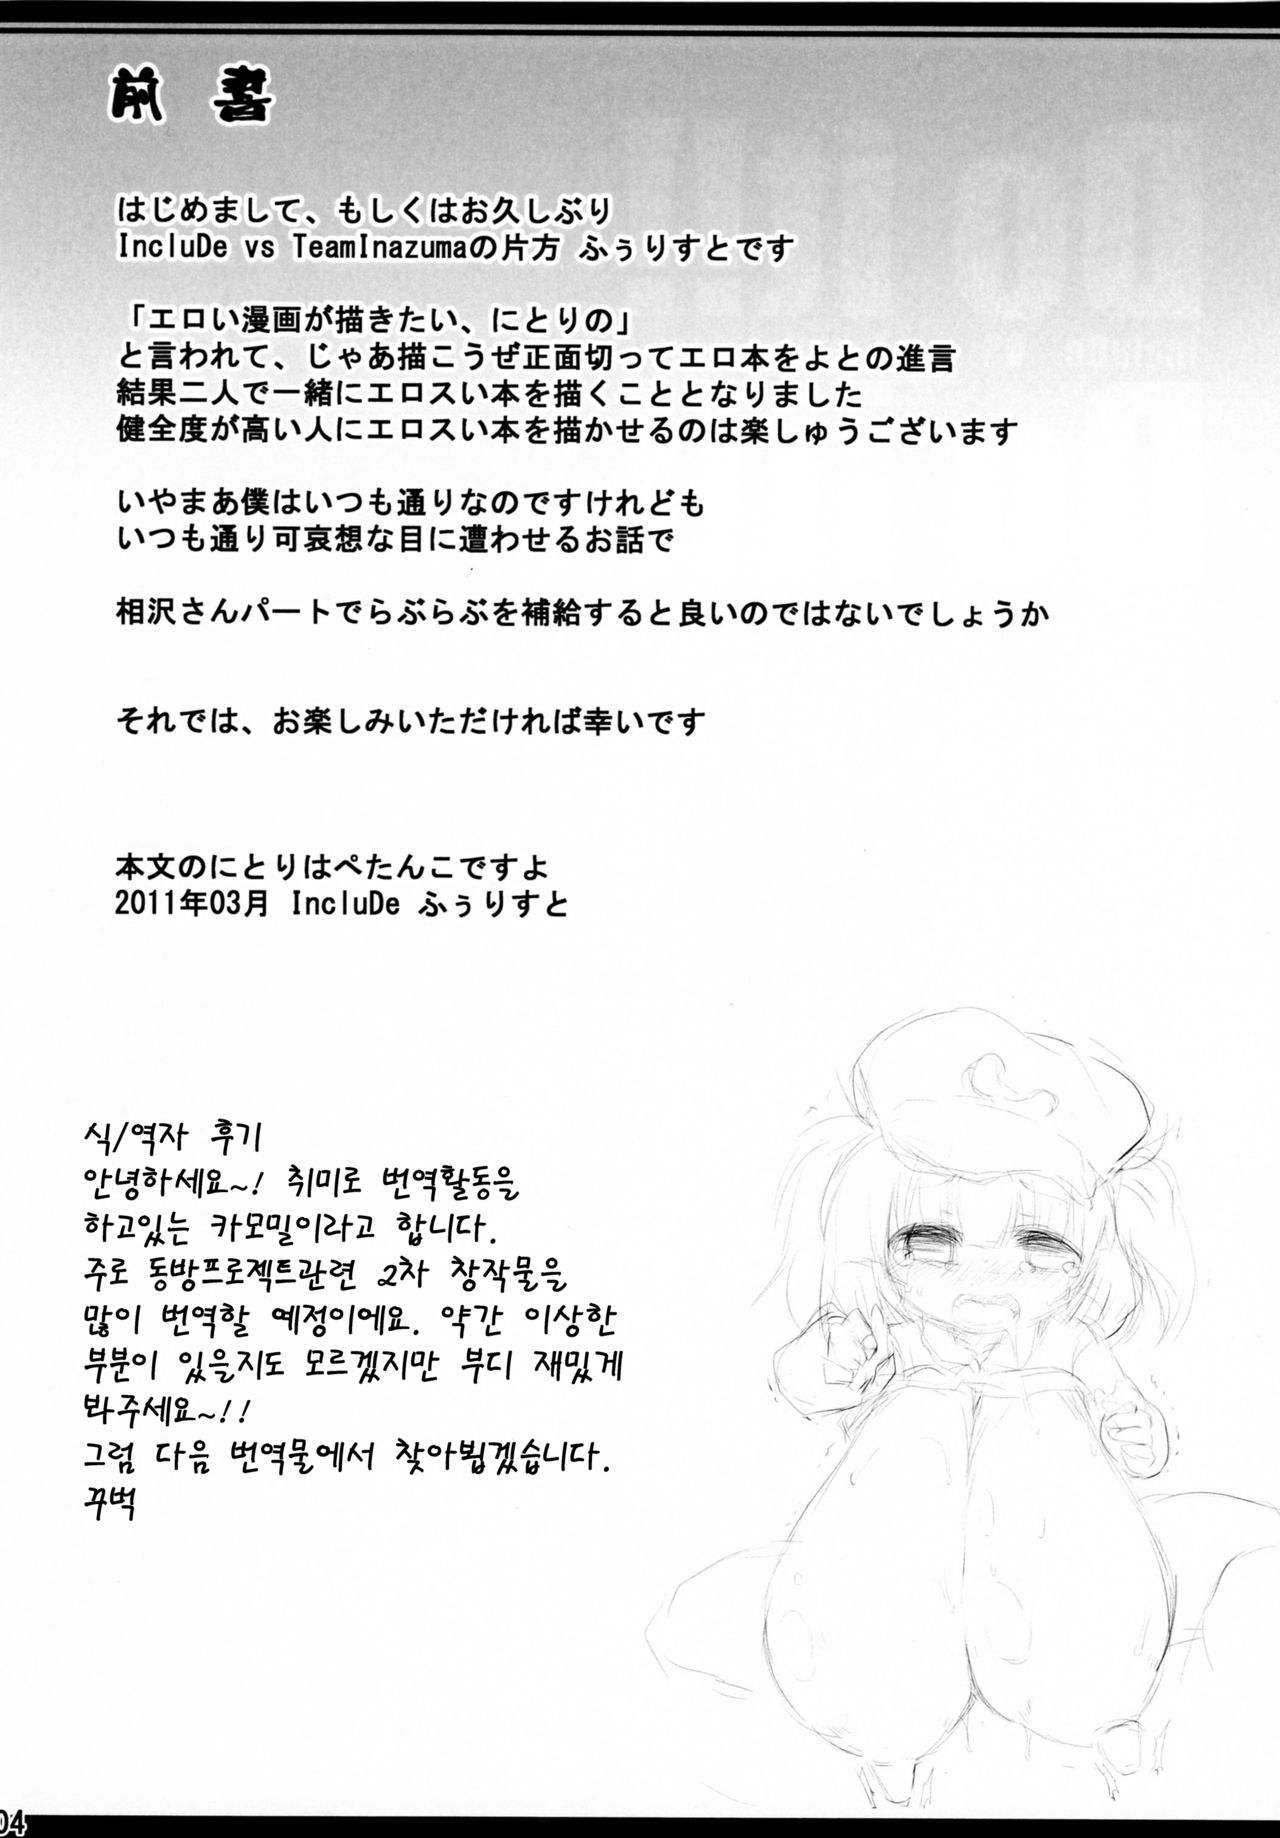 前書
はじめまして、もしくはお久しぶり
IncluDe vs TeamInazumaの片方 ふぅりすとです
「エロい漫画が描きたい、にとりの」
と言われて、じゃあ描こうぜ正面切ってエロ本をよとの進言
結果二人で一緒にエロスい本を描くこととなりました
健全度が高い人にエロスい本を描かせるのは楽しゅうございます
いやまあ僕はいつも通りなのですけれども
いつも通り可哀想な目に遭わせるお話で
相沢さんパートでらぶらぶを補給すると良いのではないでしょうか
それでは、お楽しみいただければ幸いです
本文のにとりはぺたんこですよ
2011年03月 IncluDe ふぅりすと
식/역자 후기
안녕하세요~! 취미로 번역활동을
하고있는 카모밀이라고 합니다.
주로 동방프로젝트관련 2차 창작물을
많이 번역할 예정이에요. 약간 이상한
부분이 있을지도 모르겠지만 부디 재밌게
봐주세요~!!
그럼 다음 번역물에서 찾아뵙겠습니다.
꾸벅
04